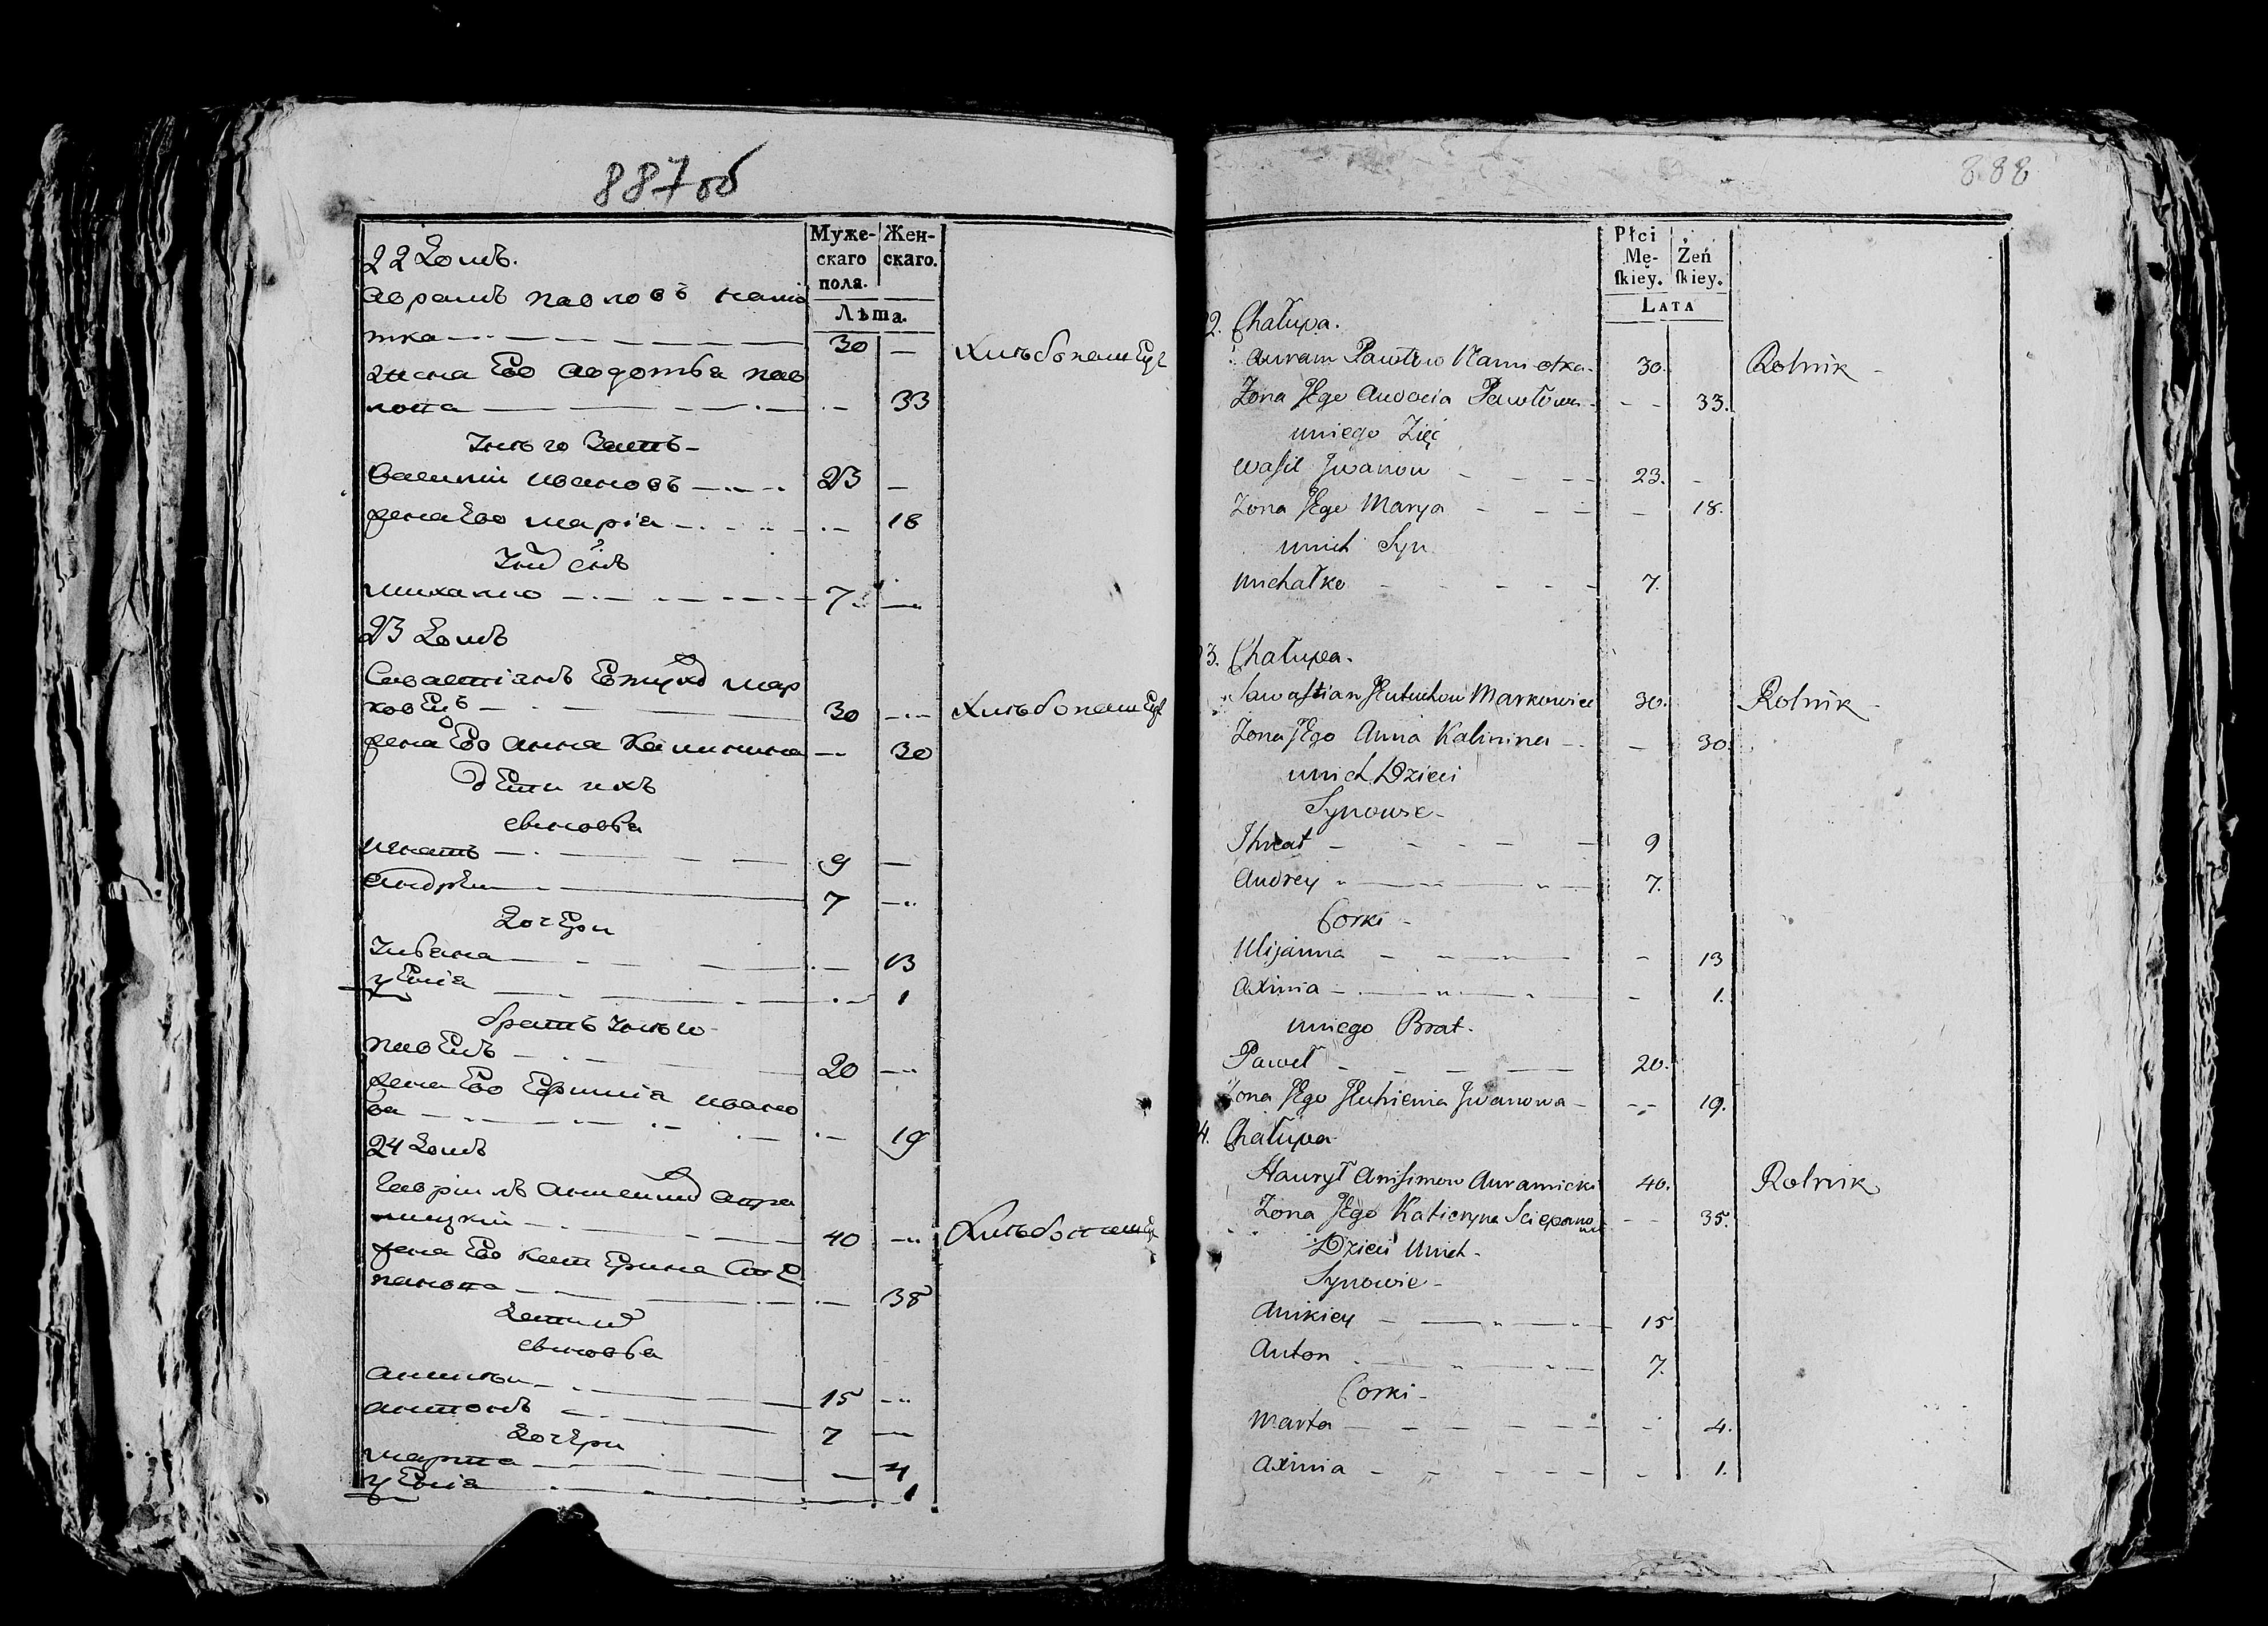 887 об
Муже-
скаго
пола.
Жен-
скаго.
Лѣта.
22 Домъ.
Аврамъ Павловъ Намiо
тка 30 —
Жена Ево Авдотья Пав
лова — 33
У него Зять
Василий Ивановъ 23 —
Жена Ево Марiя — 18
У них сынъ
Михалко 7 —
23 Домъ
Савастiанъ Евтухов Мар
ковецъ 30 —
Жена Ево Анна Калинина — 30
Дети ихъ
сыновья
Игнатъ 9 —
Андрей 7 —
Дочери
Ульяна — 13
— 1
братъ у него
Павелъ 20 —
Жена Ево Ефимiя Ивано
ва — 19
24 Домъ
Гаврiилъ Анисимов Авра
мицкий 40 —
Жена Ево Катерина Сте
панова — 38
Дети их
сыновья
Аникей 15 —
Антонъ 7 —
Дочери
Марта — 4
— 1
888
Płci
Mę-
skiey.
Żeń
skiey.
LATA
2. Chałupa.
Auram Pawłow Namiotka 30. Rolnik
Żona Jego Audocia Pawłowa 33.
u niego Zięć
Wasil Jwanow 23.
Żona Jego Marya 18.
u nich Syn
Michałko 7.
3. Chałupa.
Sawastian Jeutuchow Markowiec 30. Rolnik
Żona Jego Anna Kalinina 30.
u nich Dzieci
Synowie
Ihnat 9
Andrey 7.
Corki
Ulijanna 13
Axinia 1.
u niego Brat.
Paweł 20.
Żona Jego Jeuhienia Jwanowa 19.
4. Chałupa
Haurył Anisimow Auramicki 40. Rolnik
Żona Jego Katieryna Sciepanowa 35.
Dzieci u nich
Synowie
Anikiey 15
Anton 7.
Corki
Marta 4.
Axinia 1.